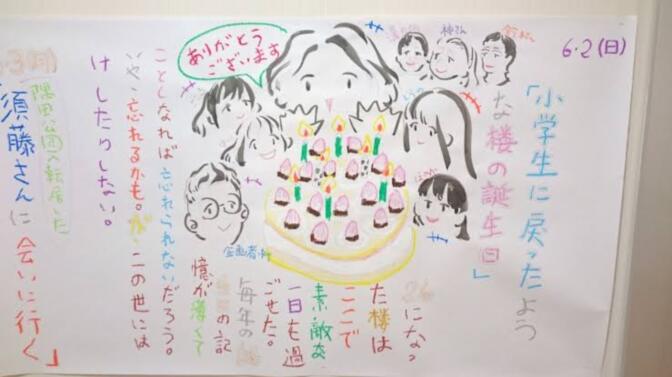 6.2(日)
「小学生に戻ったよう
な楼の誕生日」
ありがとう
ございます
神さん
になっ
た楼は
ここで
素敵な
一日も過
ごせた。
毎年の
の記
憶が薄くて
ことしなれば忘れられないだろう。
いや、忘れるかも。が、この世には
けしたりしない。
企画者
(月)
隅田公園の
須藤さんに会いに行く」